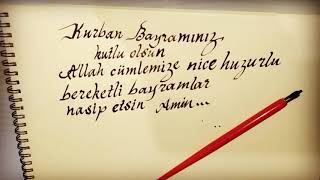 Kurban Bayramınız
kutlu olsun
Allah cümlemize nice huzurlu
bereketli bayramlar
nasip etsin Amin...